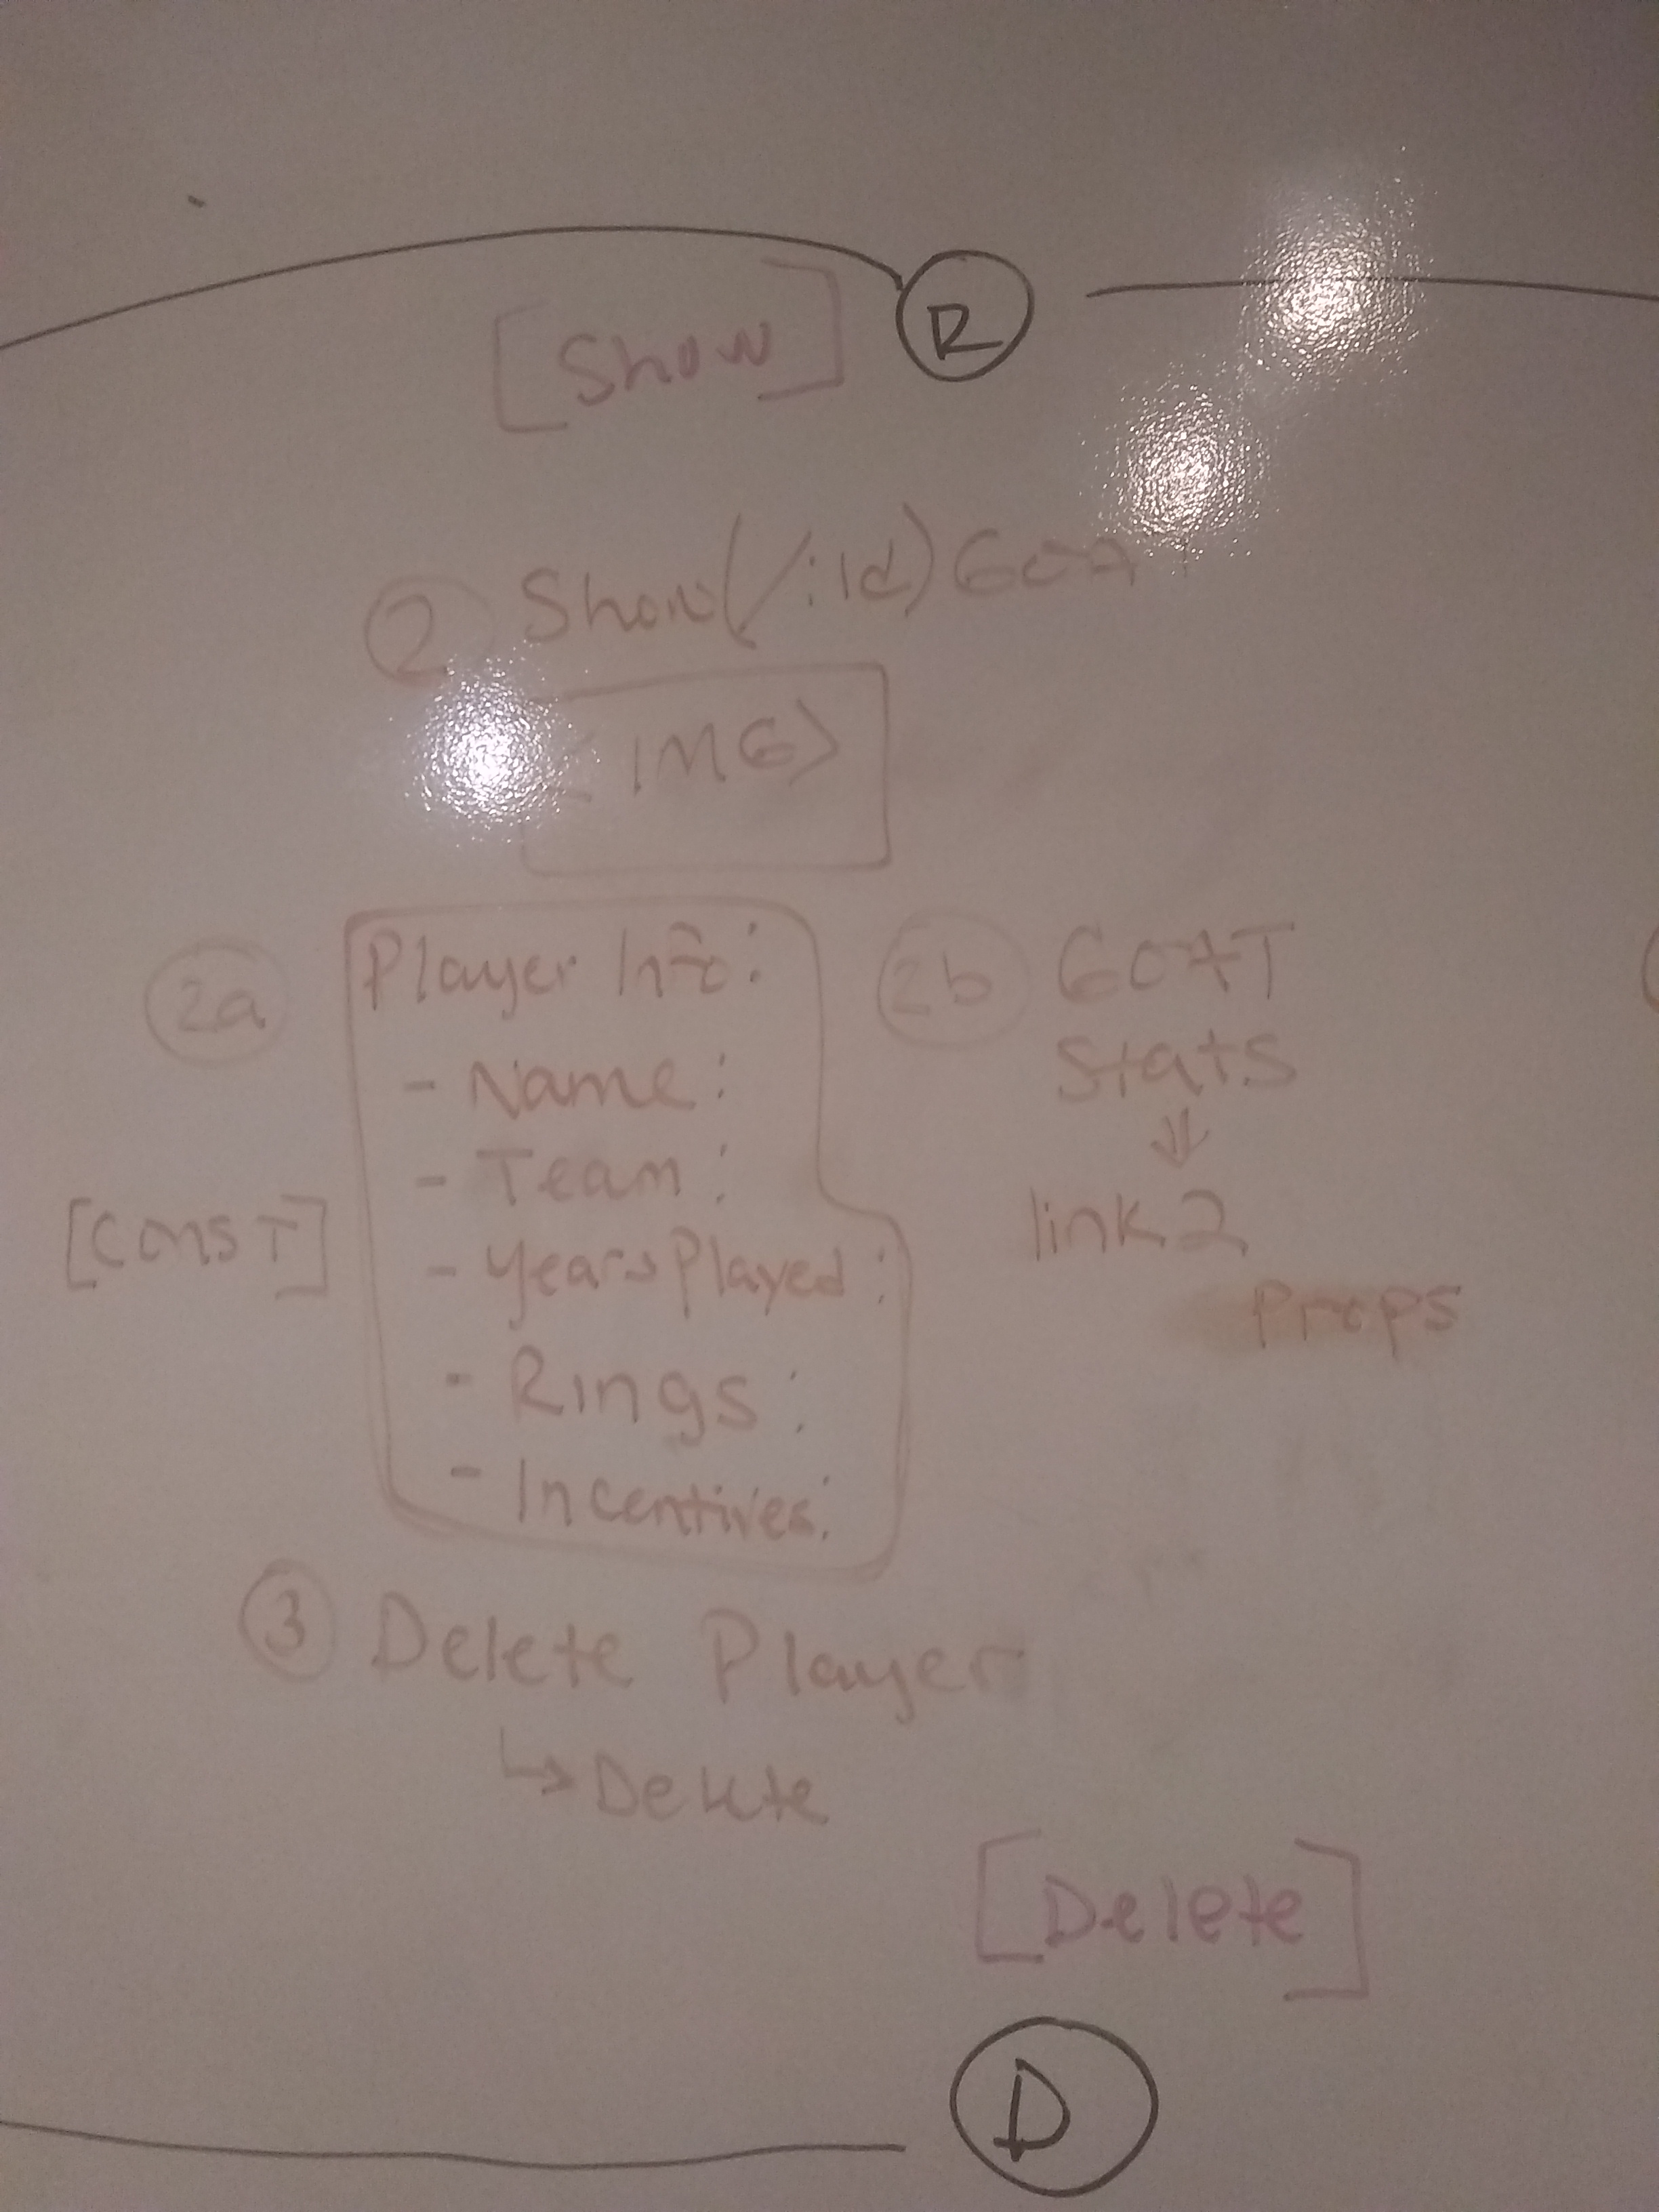 [Show] R
2 Show(/:id) GOAT
<IMG>
2a Player Info:
- Name:
- Team:
- Years Played:
- Rings:
- Incentives:
[CONST]
2b GOAT
Stats
link 2
Props
3 Delete Player
Delete
[Delete]
D